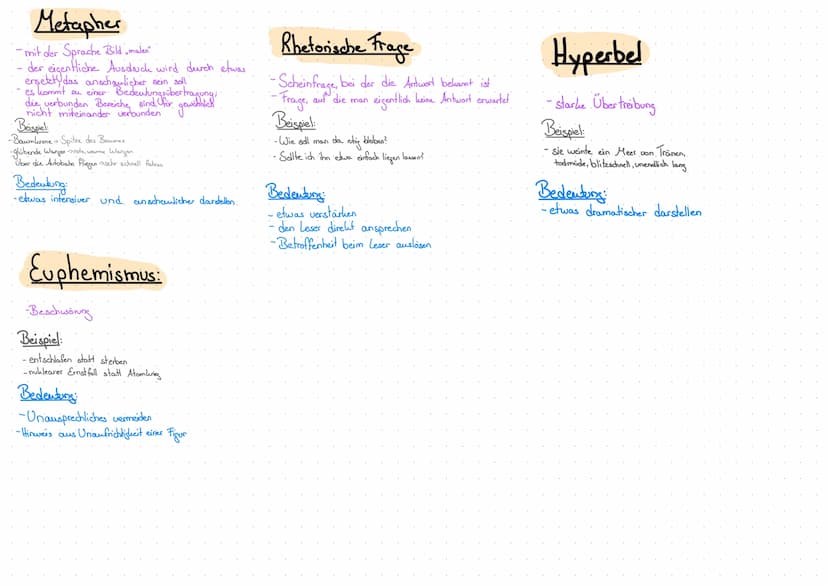 Metapher
- mit der Sprache Bild „malen"
- der eigentliche Ausdruck wird durch etwas
ersetzt, das anschaulicher sein soll
- es kommt zu einer Bedeutungsübertragung;
die verbunden Bereiche sind für gewöhnlich
nicht miteinander verbunden
Beispiel:
- Baumkrone → Spitze des Baumes
- glühende Wangen → rote, warme Wangen
- Über die Autobahn fliegen → sehr schnell fahren
Bedeutung:
- etwas intensiver und anschaulicher darstellen
Rhetorische Frage
- Scheinfrage, bei der die Antwort bekannt ist
- Frage, auf die man eigentlich keine Antwort erwartet
Beispiel:
- Wie soll man da ruhig bleiben?
- Sollte ich ihn etwa einfach liegen lassen?
Bedeutung:
- etwas verstärken
- den Leser direkt ansprechen
- Betroffenheit beim Leser auslösen
Hyperbel
- starke Übertreibung
Beispiel:
- sie weinte ein Meer von Tränen,
todmüde, blitzschnell, unendlich lang
Bedeutung:
- etwas dramatischer darstellen
Euphemismus:
- Beschwörung
Beispiel:
- entschlafen statt sterben
- nuklearer Ernstfall statt Atomkrieg
Bedeutung:
- Unausprechliches vermeiden
- Hinweis aus Unaufrichtigkeit einer Figur